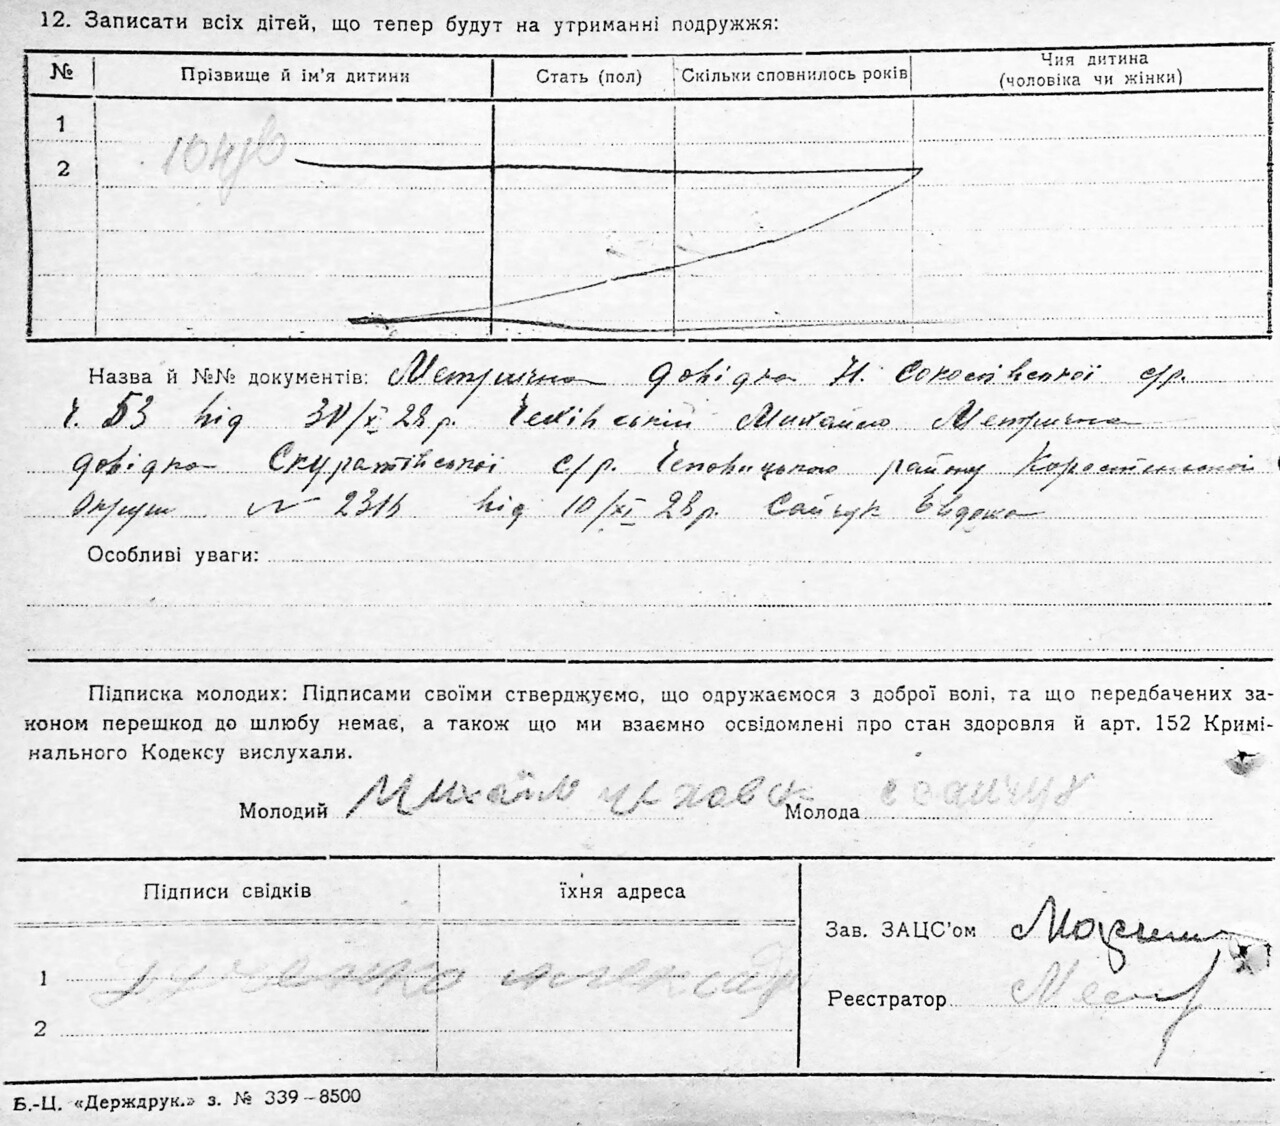 12. Записати всіх дітей, що тепер будут на утриманні подружжя:
№ Прізвище й ім'я дитини Стать (пол) Скільки сповнилось років Чия дитина (чоловіка чи жінки)
1
2
Назва й №№ документів: Метрична довідка Н. с/р.
ч. 53 від 30/XI 28 р. Михайло Метрична
довідка с/р. Чеповицького району Коростенської
Округи № від 10/XI 28 р. Сайчук Видана
Особливі уваги:
Підписка молодих: Підписами своїми стверджуємо, що одружаємося з доброї волі, та що передбачених за-
коном перешкод до шлюбу немає, а також що ми взаємно освідомлені про стан здоровля й арт. 152 Кримі-
нального Кодексу вислухали.
Молодий Михайло Молода Сайчук
Підписи свідків їхня адреса
Зав. ЗАЦС'ом
1
Реєстратор
2
Б.-Ц. «Держдрук.» з. № 339–8500